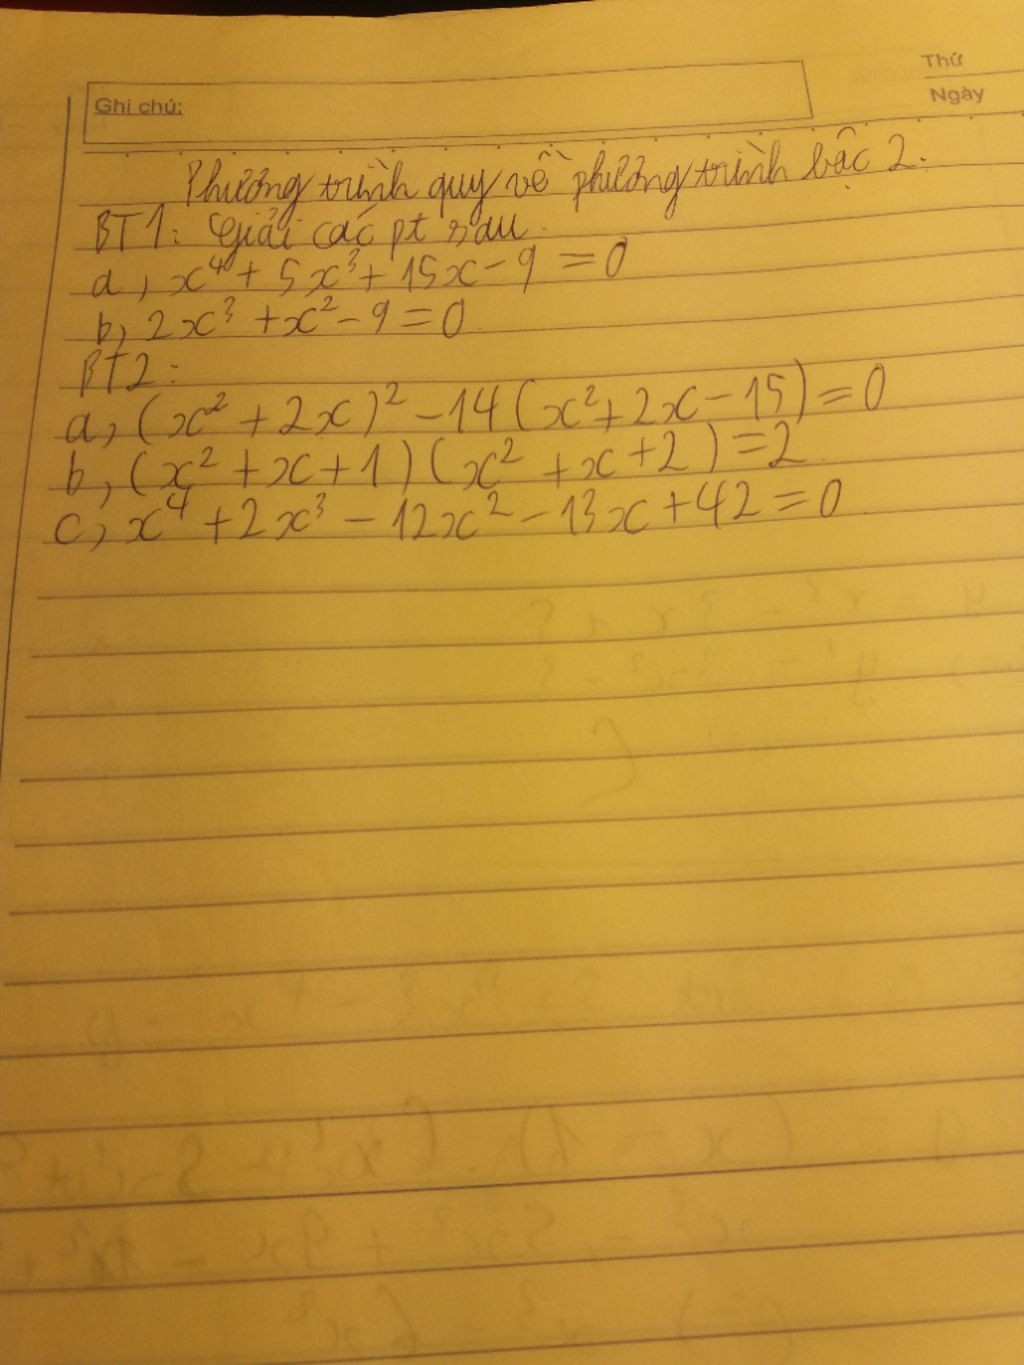 Thứ
Ngày
Ghi chú:
Phương trình quy về phương trình bậc 2.
BT1: Giải các pt sau.
a, x⁴ + 5x³ + 15x - 9 = 0
b, 2x³ + x² - 9 = 0
BT2:
a, (x² + 2x)² - 14(x² + 2x - 15) = 0
b, (x² + x + 1)(x² + x + 2) = 2
c, x⁴ + 2x³ - 12x² - 13x + 42 = 0